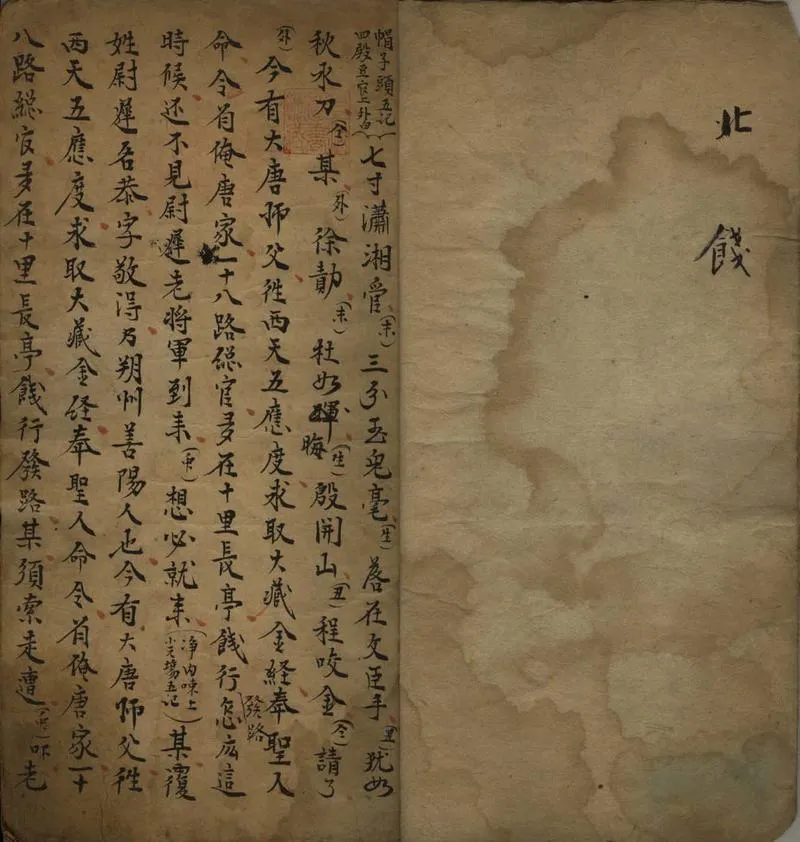 北餞
帽子頭五記
四殿官上外白
七寸瀟湘管(末)三分玉兔毫(生)落在文臣手(丑)犹如
秋水刀(仝)某(外)徐勣(末)杜如晦(生)殷開山(丑)程咬金(仝)請了
(外)今有大唐师父徃西天五應度求取大藏金経奉聖人
命令着俺唐家一十八路総官多在十里長亭餞行發路怎庅這
時候还不見尉遲老将軍到来 想必就来(净内上
小場五記)某覆
姓尉遲吾恭字敬得乃朔州善陽人也今有大唐师父徃
西天五應度求取大藏金経奉聖人命令着俺唐家一十
八路総官多在十里長亭餞行發路某須索走遭 老